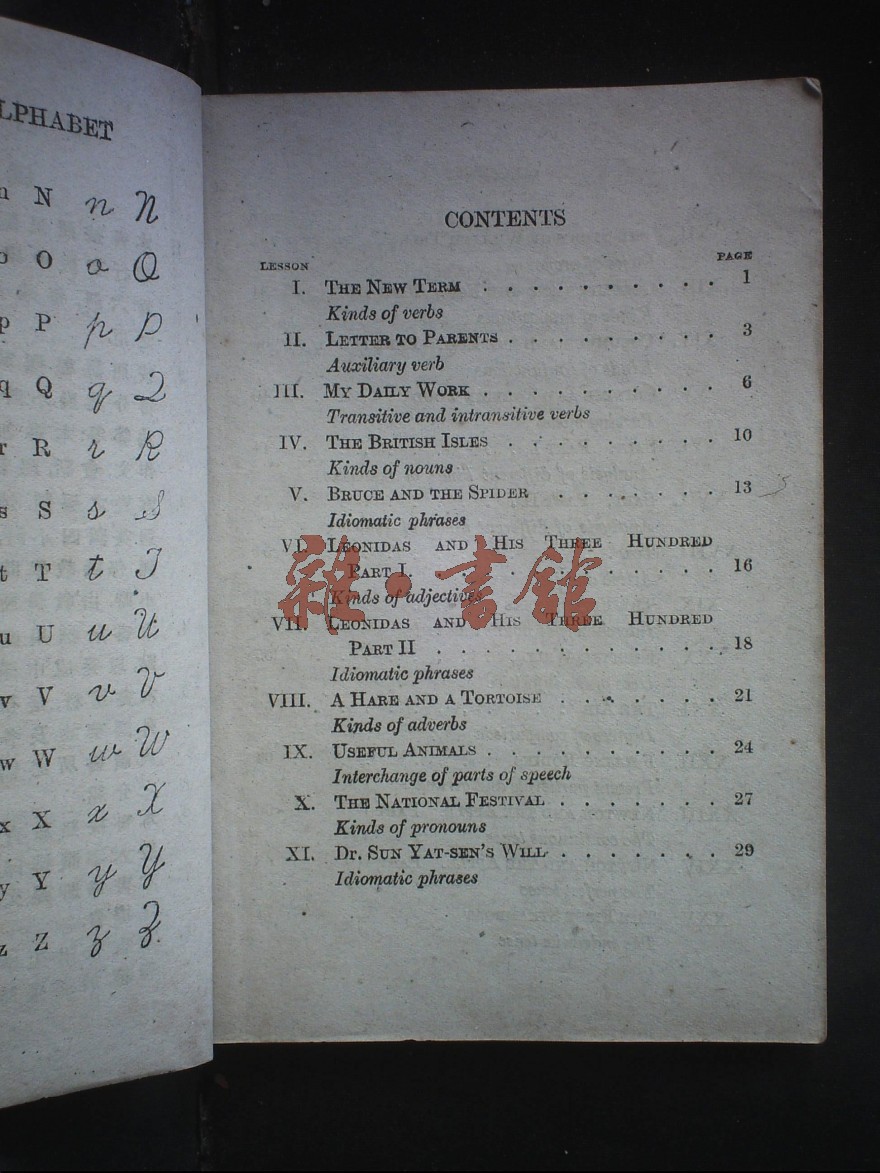 ALPHABET
n N n N
o O o O
p P p P
q Q q Q
r R r R
s S s S
t T t T
u U u U
v V v V
w W w W
x X x X
y Y y Y
z Z z Z
CONTENTS
LESSON PAGE
I. THE NEW TERM . . . . . . . . . . 1
Kinds of verbs
II. LETTER TO PARENTS . . . . . . . . . 3
Auxiliary verb
III. MY DAILY WORK . . . . . . . . . . 6
Transitive and intransitive verbs
IV. THE BRITISH ISLES . . . . . . . . . 10
Kinds of nouns
V. BRUCE AND THE SPIDER . . . . . . . 13
Idiomatic phrases
VI. LEONIDAS AND HIS THREE HUNDRED
PART I . . . . . . . . . . . . 16
Kinds of adjectives
VII. LEONIDAS AND HIS THREE HUNDRED
PART II . . . . . . . . . . . . 18
Idiomatic phrases
VIII. A HARE AND A TORTOISE . . . . . . . 21
Kinds of adverbs
IX. USEFUL ANIMALS . . . . . . . . . . 24
Interchange of parts of speech
X. THE NATIONAL FESTIVAL . . . . . . . 27
Kinds of pronouns
XI. DR. SUN YAT-SEN'S WILL . . . . . . . 29
Idiomatic phrases
雜·書館